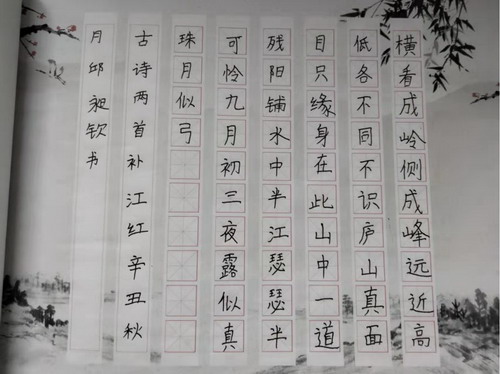 横看成岭侧成峰远近高
低各不同不识庐山真面
目只缘身在此山中一道
残阳铺水中半江瑟瑟半
可怜九月初三夜露似真
珠月似弓
古诗两首补江红辛丑秋
月邱昶钦书